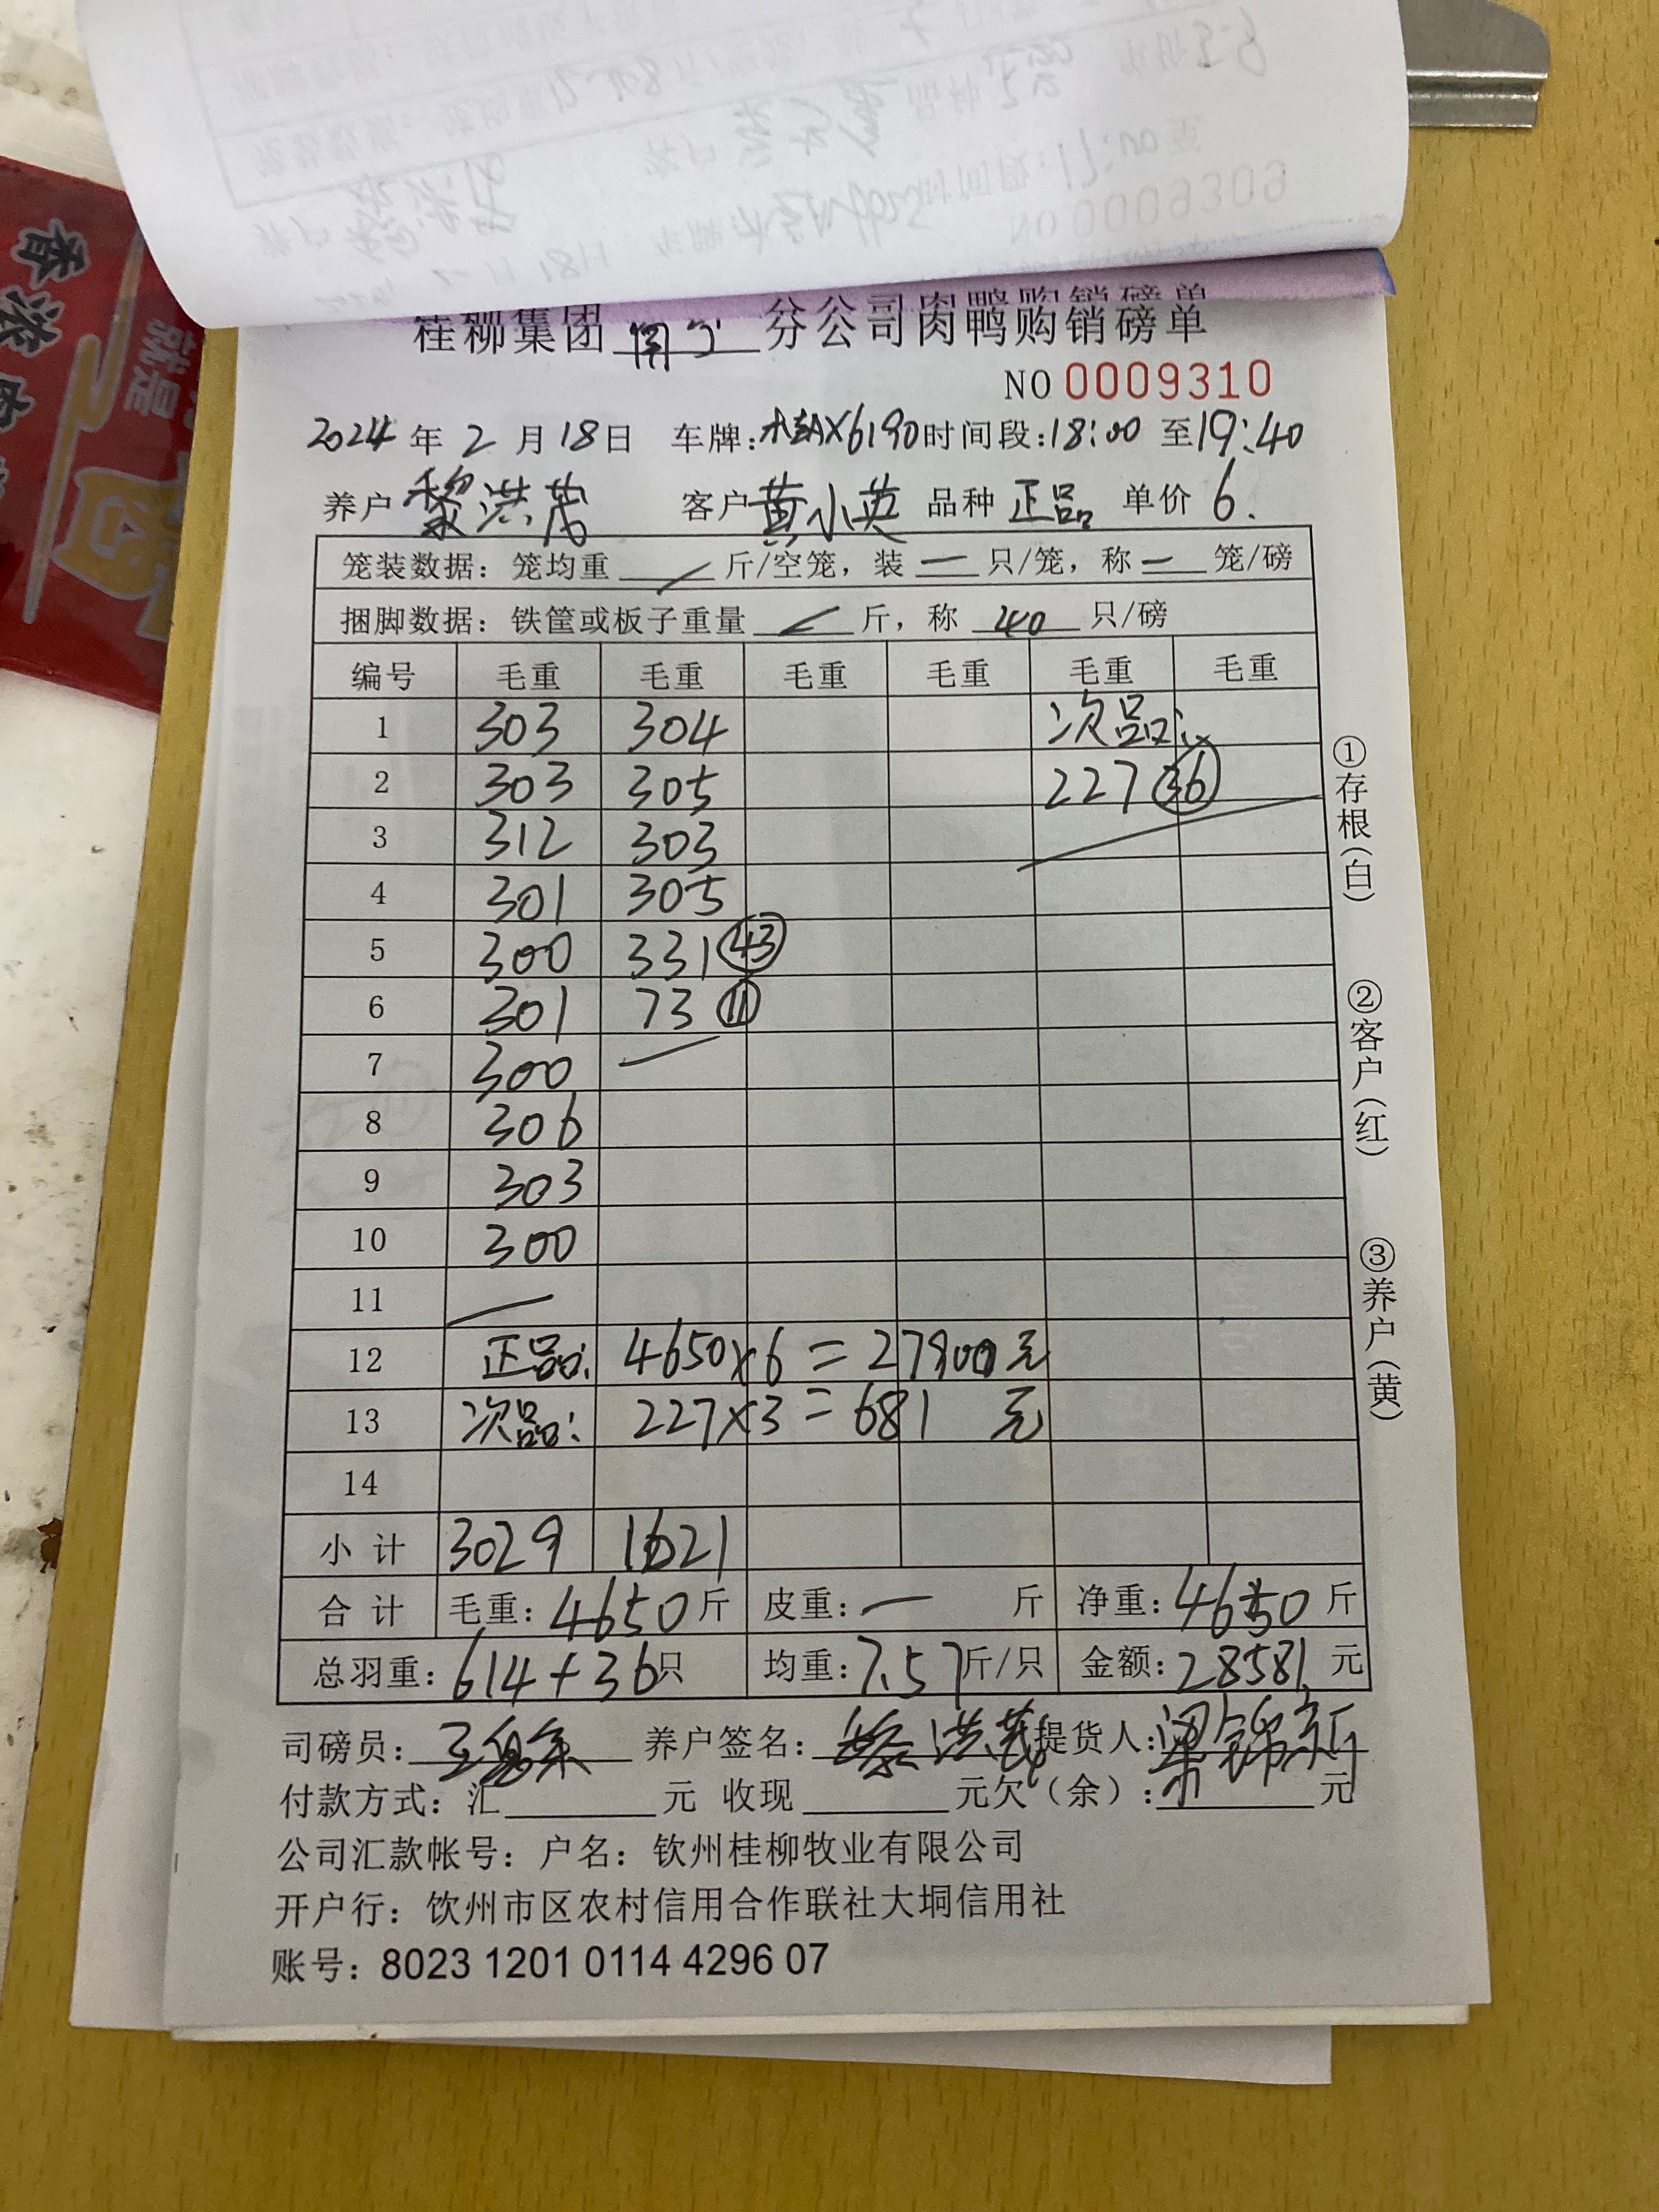 桂柳集团 南宁 分公司肉鸭购销磅单
NO 0009310
2024 年 2 月 18 日 车牌: 桂AX6190 时间段: 18:00 至 19:40
养户 黎洪茂 客户 黄小英 品种 正品 单价 6.
笼装数据: 笼均重 / 斤/空笼, 装 一 只/笼, 称 一 笼/磅
捆脚数据: 铁筐或板子重量 / 斤, 称 40 只/磅
编号 毛重 毛重 毛重 毛重 毛重 毛重
1 303 304 次品:
2 303 305 227 36
3 312 303
4 301 305
5 300 331 43
6 301 73 11
7 300
8 306
9 303
10 300
11
12 正品: 4650×6=27900元
13 次品: 227×3=681 元
14
小计 3029 1621
合计 毛重: 4650 斤 皮重: 一 斤 净重: 4650 斤
总羽重: 614+36只 均重: 7.57斤/只 金额: 28581. 元
司磅员: 养户签名: 黎洪茂 提货人: 梁锦新
付款方式: 汇 元 收现 元欠(余): 元
公司汇款帐号: 户名: 钦州桂柳牧业有限公司
开户行: 钦州市区农村信用合作联社大垌信用社
账号: 8023 1201 0114 4296 07
①存根(白)
②客户(红)
③养户(黄)
NO 0009309
香浓
就是